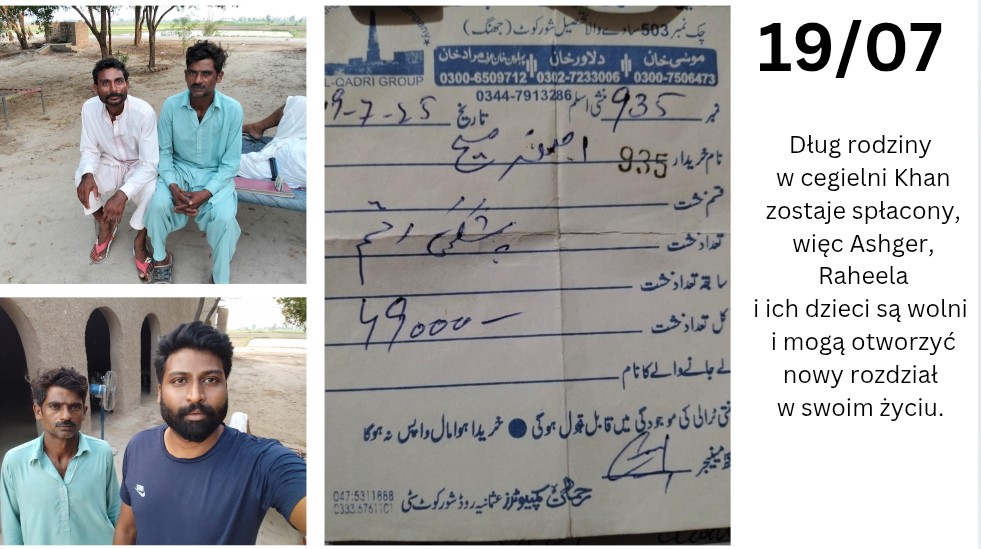 چک نمبر 503 ساوے والا تحصیل شورکوٹ (جھنگ)
موسیٰ خان دلاور خان مراد خان
0300-7506473 0302-7233006 0300-6509712
L-QADRI GROUP
0344-7913286
نمبر 935 تاریخ 9-7-25
نام خریدار 935 مسیح
قسم خشت
تعداد خشت
سابقہ تعداد خشت
کل تعداد خشت 49000
لے جانے والے کا نام
ٹرالی کی موجودگی میں قابل قبول ہوگی ● خریدا ہوا مال واپس نہ ہوگا
مینجر
کمپیوٹرز عثمانیہ روڈ شورکوٹ سٹی
047:5311888
0333.6761101
19/07
Dług rodziny
w cegielni Khan
zostaje spłacony,
więc Ashger,
Raheela
i ich dzieci są wolni
i mogą otworzyć
nowy rozdział
w swoim życiu.